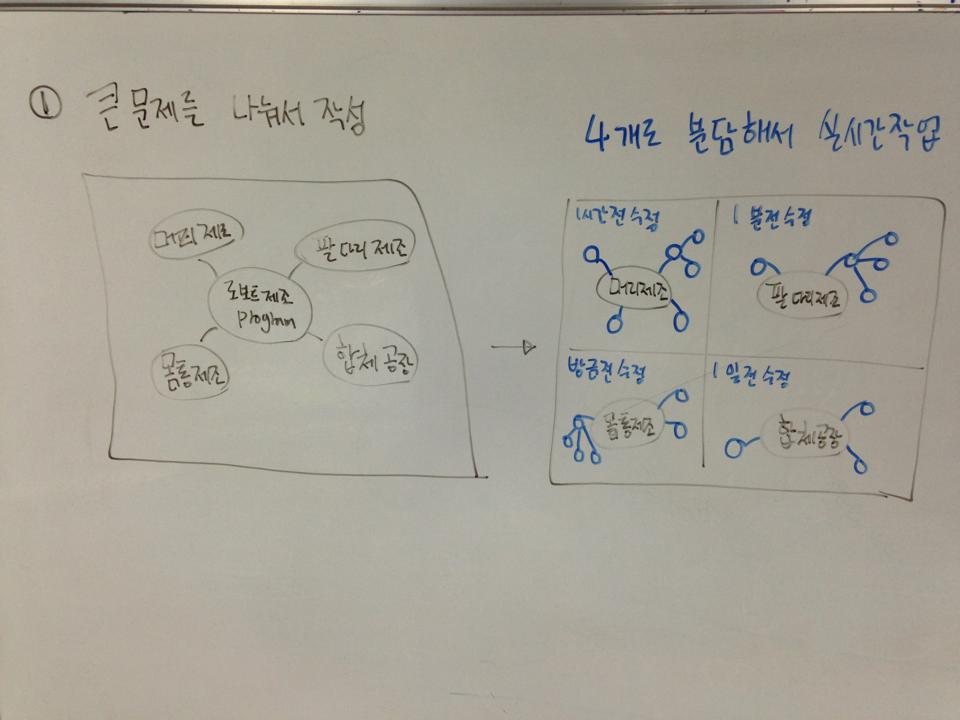 ① 큰 문제를 나눠서 작성
머리제조
팔다리제조
로보트제조
program
몸통제조
합체공장
4개로 분담해서 실시간작업
1시간전수정
머리제조
1분전수정
팔다리제조
방금전수정
몸통제조
1일전수정
합체공장